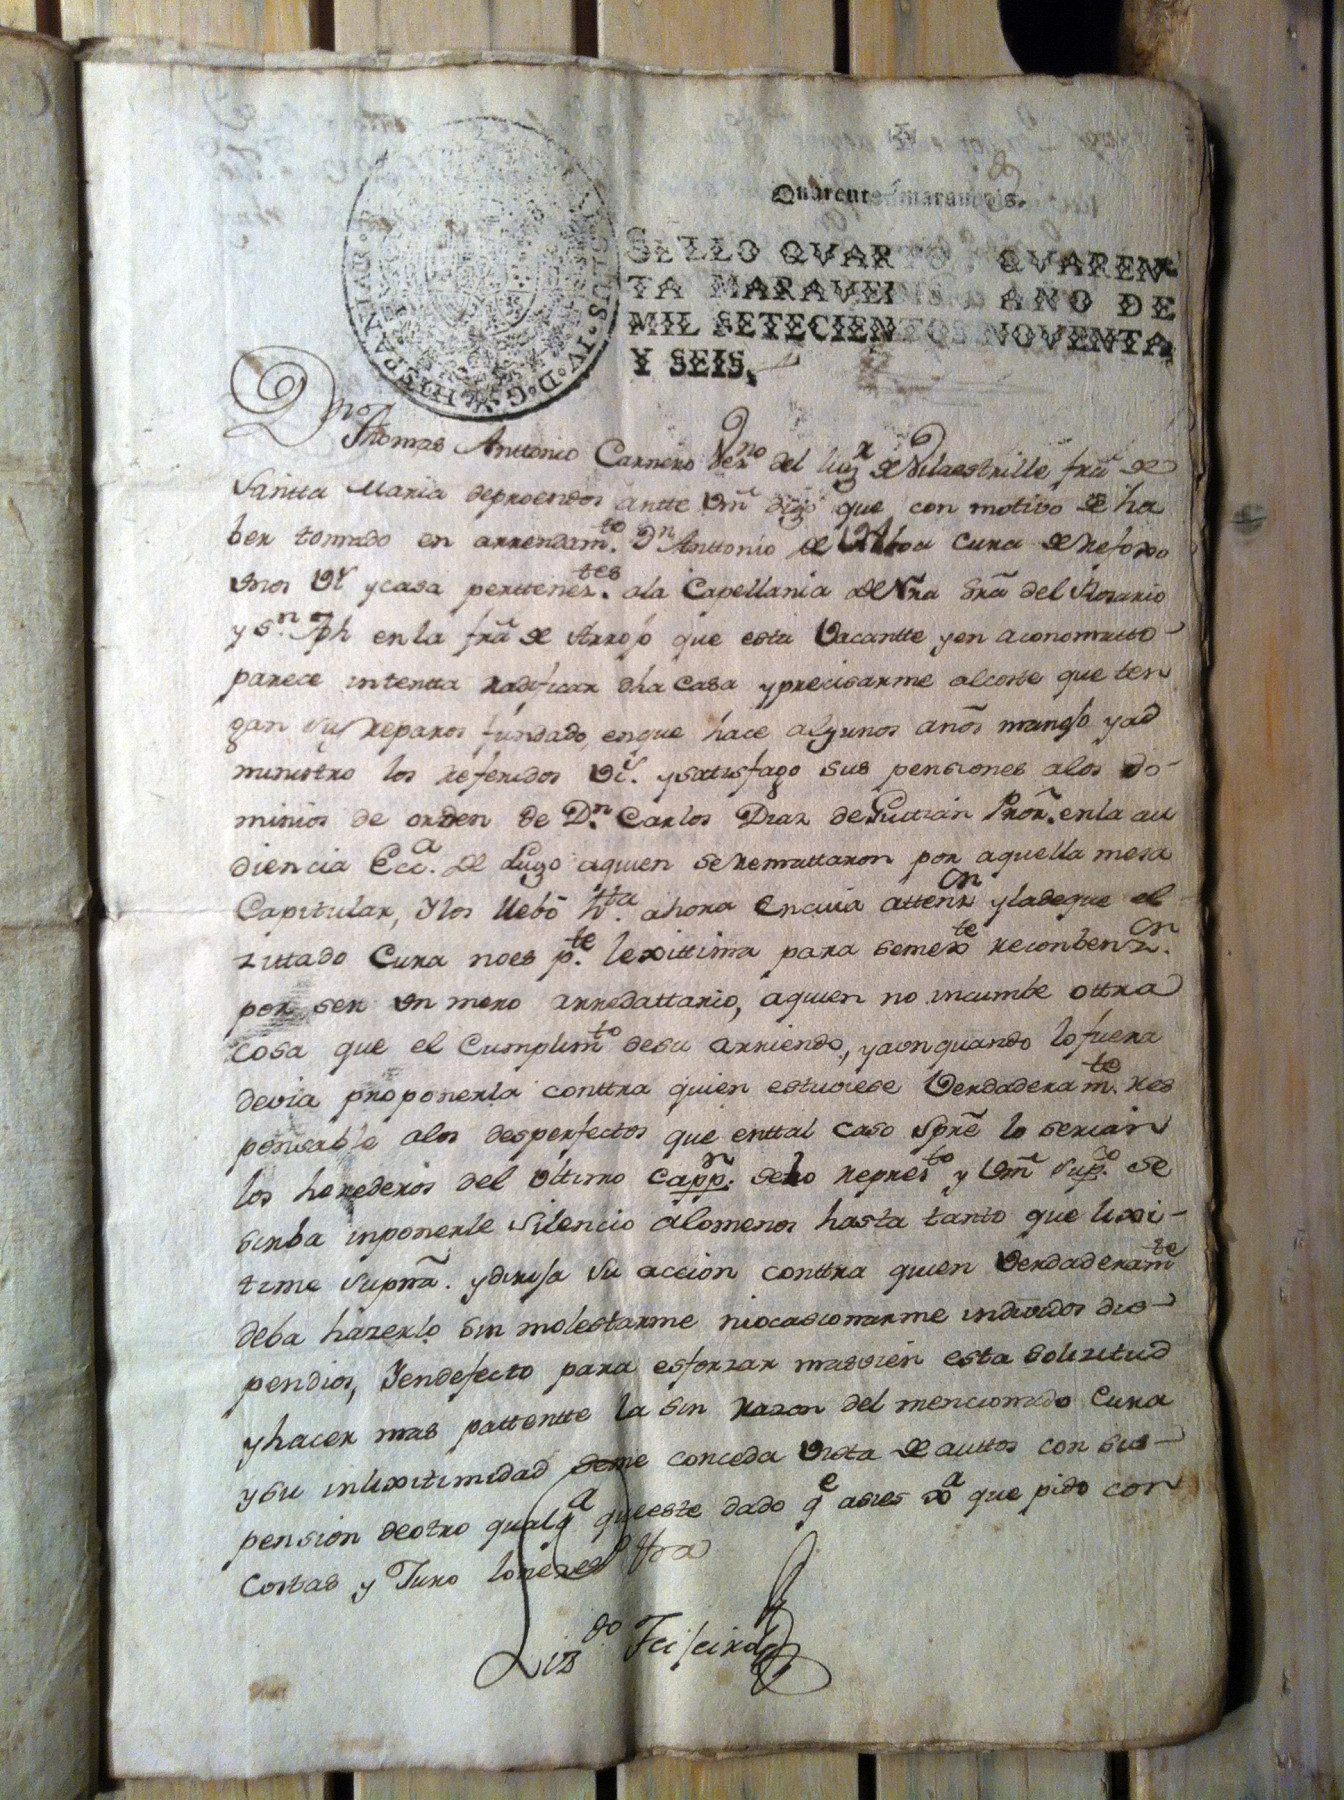 Quarenta maravedis.
SELLO QVARTO, QVAREN-
TA MARAVEDIS, AÑO DE
MIL SETECIENTOS NOVENTA
Y SEIS.
HISPANIAR CAROLUS·IV·D·G·
Thomas Anttonio Carnero Vez.no del lug.r de Vilaestrille frã de
Santta Maria deproendos antte Vm̃ digo que con motivo de ha
ber tomado en arrendam.to D.n Anttonio de Ulloa Cura de Refoxo
unos V.s y casa perttenez.tes ala Capellania de Nr̃a Sr̃a del Rosario
y S.n Jph en la frã de Arrojo que esta Vacantte y en aconomatto-
parece intenta radificar dha Casa y precisarme alcoste que ten
gan sus reparos fundado, enque hace algunos años manejo y ad
ministro los referidos V.s. y satisfago sus pensiones alos do-
minios de orden de D.n Carlos Diaz de Guitian Pror̃. enla au
diencia Ecc.a de Lugo aquien se remattaron por aquella mesa
Capitular, Y los llebo h.tta ahora En cuia attenz.on y lade que el
zittado Cura no es p.te lexittima para semex.te reconbenz.on
por ser un mero arredattario, aquien no incumbe ottra
cosa que el Cumplim.to desu arriendo, y aun quando lo fuera
devia proponerla conttra quien estuviese Verdaderam.te res
ponsable alos desperfectos que enttal caso spr̃e lo serian
los herederos del ultimo Capp.n repres.to y Vm̃ sup.co se
sirba inponerle Silencio alomenos hasta tanto que lixi-
time supr̃a. y dirija su accion conttra quien Verdaderam.te
deba hazerlo sin molestarme niocasionarme indevidos dis-
pendios, Y en defecto para esforzar masvien esta solizitud
y hacer mas pattentte la sin razon del mencionado Cura
y su inlixitimidad seme conceda vista de auttos con sus-
pension deotro qualq.a que este dado q.e asi es xa que pido con
Costas y Juro lonezes.o Ura
Liz.do Feijeira